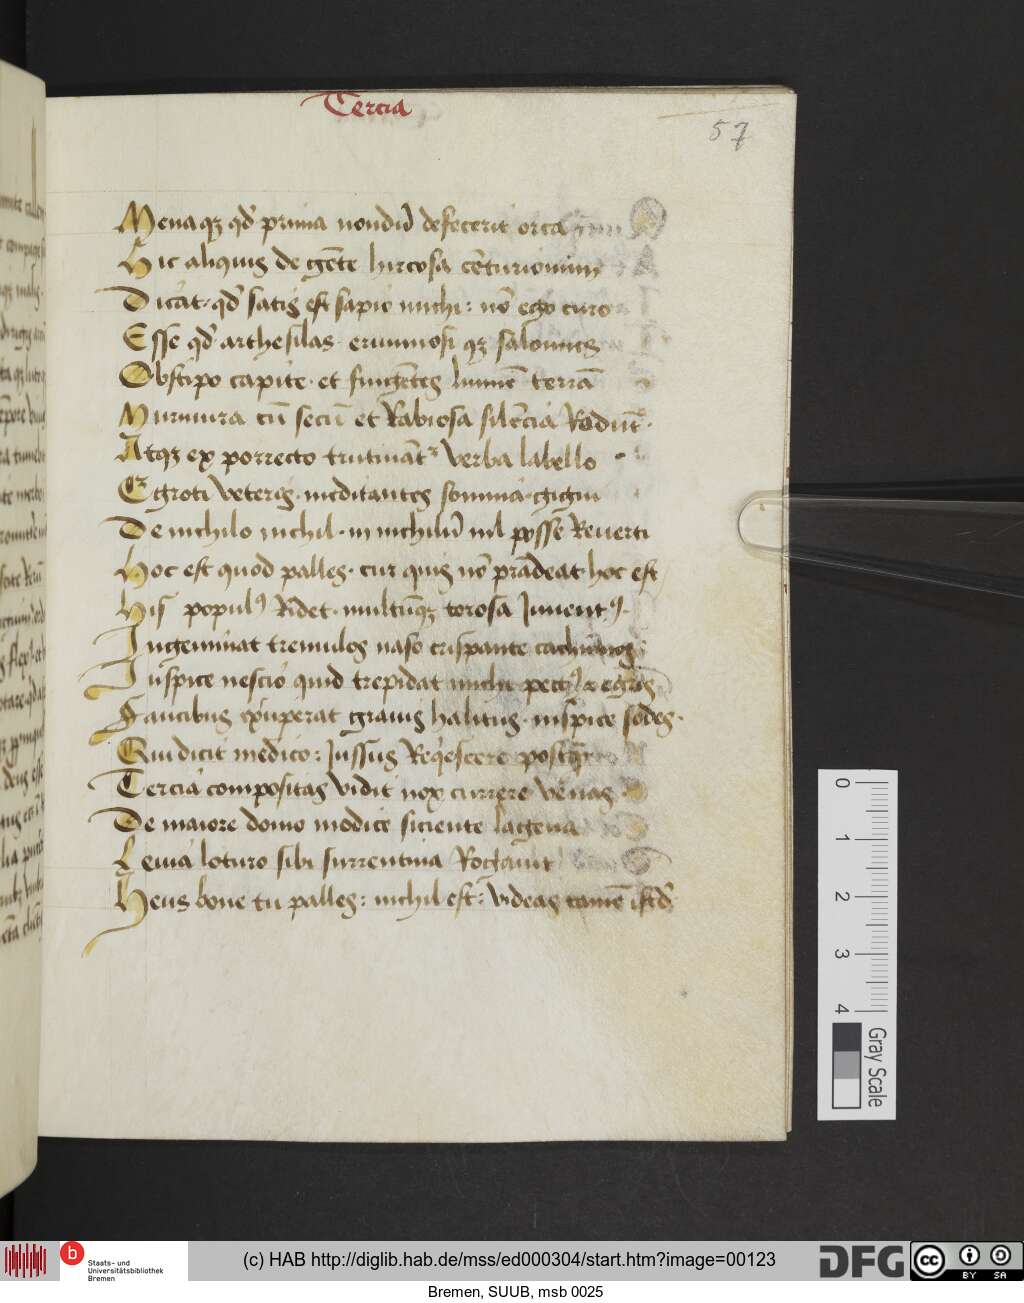 Tercia
57
Menaqꝫ qd' prima nondū defecerit orca
Hic aliquis de gēte hircosa cēturionum
Dicat. qd' satis est sapio michi: nō ego curo
Esse qd' arthesilas erumnosi qꝫ salones
Obstipo capite. et fingētes lumīe terrā
Murmura cū secū et Rabiosa silēcia Rodūt.
Atqꝫ ex porrecto trutinātᵣ verba labello
Egroti veteris. meditantes somnia. gigni
De nichilo nichil. in nichilū nil posse Reverti
Hoc est quod palles. cur quis nō prādeat hoc est
His populꝰ Ridet. multūqꝫ torosa Iuventꝰ.
Ingeminat tremulos naso crispante cachinnos
Inspice nescio quid trepidat michi pectꝰ egris
Faucibus exuperat gravis halitus. inspice sodes.
Qui dicit medico: Iussus Reqescere postqȝ
Tercia compositas vidit nox currere venas
De maiore domo modice siciente lagena
Lenia loturo sibi surrentina Rogavit
Heus bone tu palles: nichil est: videas tamē istd'
0
1
2
3
4
Gray Scale
b Staats- und
Universitätsbibliothek
Bremen
(c) HAB http://diglib.hab.de/mss/ed000304/start.htm?image=00123
DFG
cc BY SA
Bremen, SUUB, msb 0025